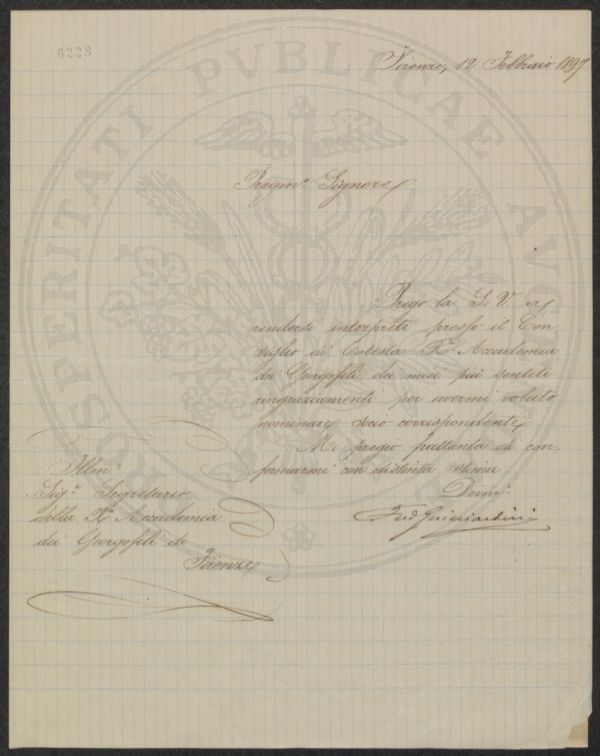 6228
PROSPERITATI PUBLICAE AUG
Firenze, 12 Febbraio 1897
Pregmo. Signore
Prego la S. V. a
rendersi interprete presso il Con-
siglio di Cotesta Ra. Accademia
dei Georgofili dei miei più sentiti
ringraziamenti per avermi voluto
nominare socio corrispondente
Mi pregio frattanto di con-
fermarmi con distinta stima
Devmo.
Guicciardini
Illmo.
Sigr. Segretario
della Ra. Accademia
dei Georgofili di
Firenze